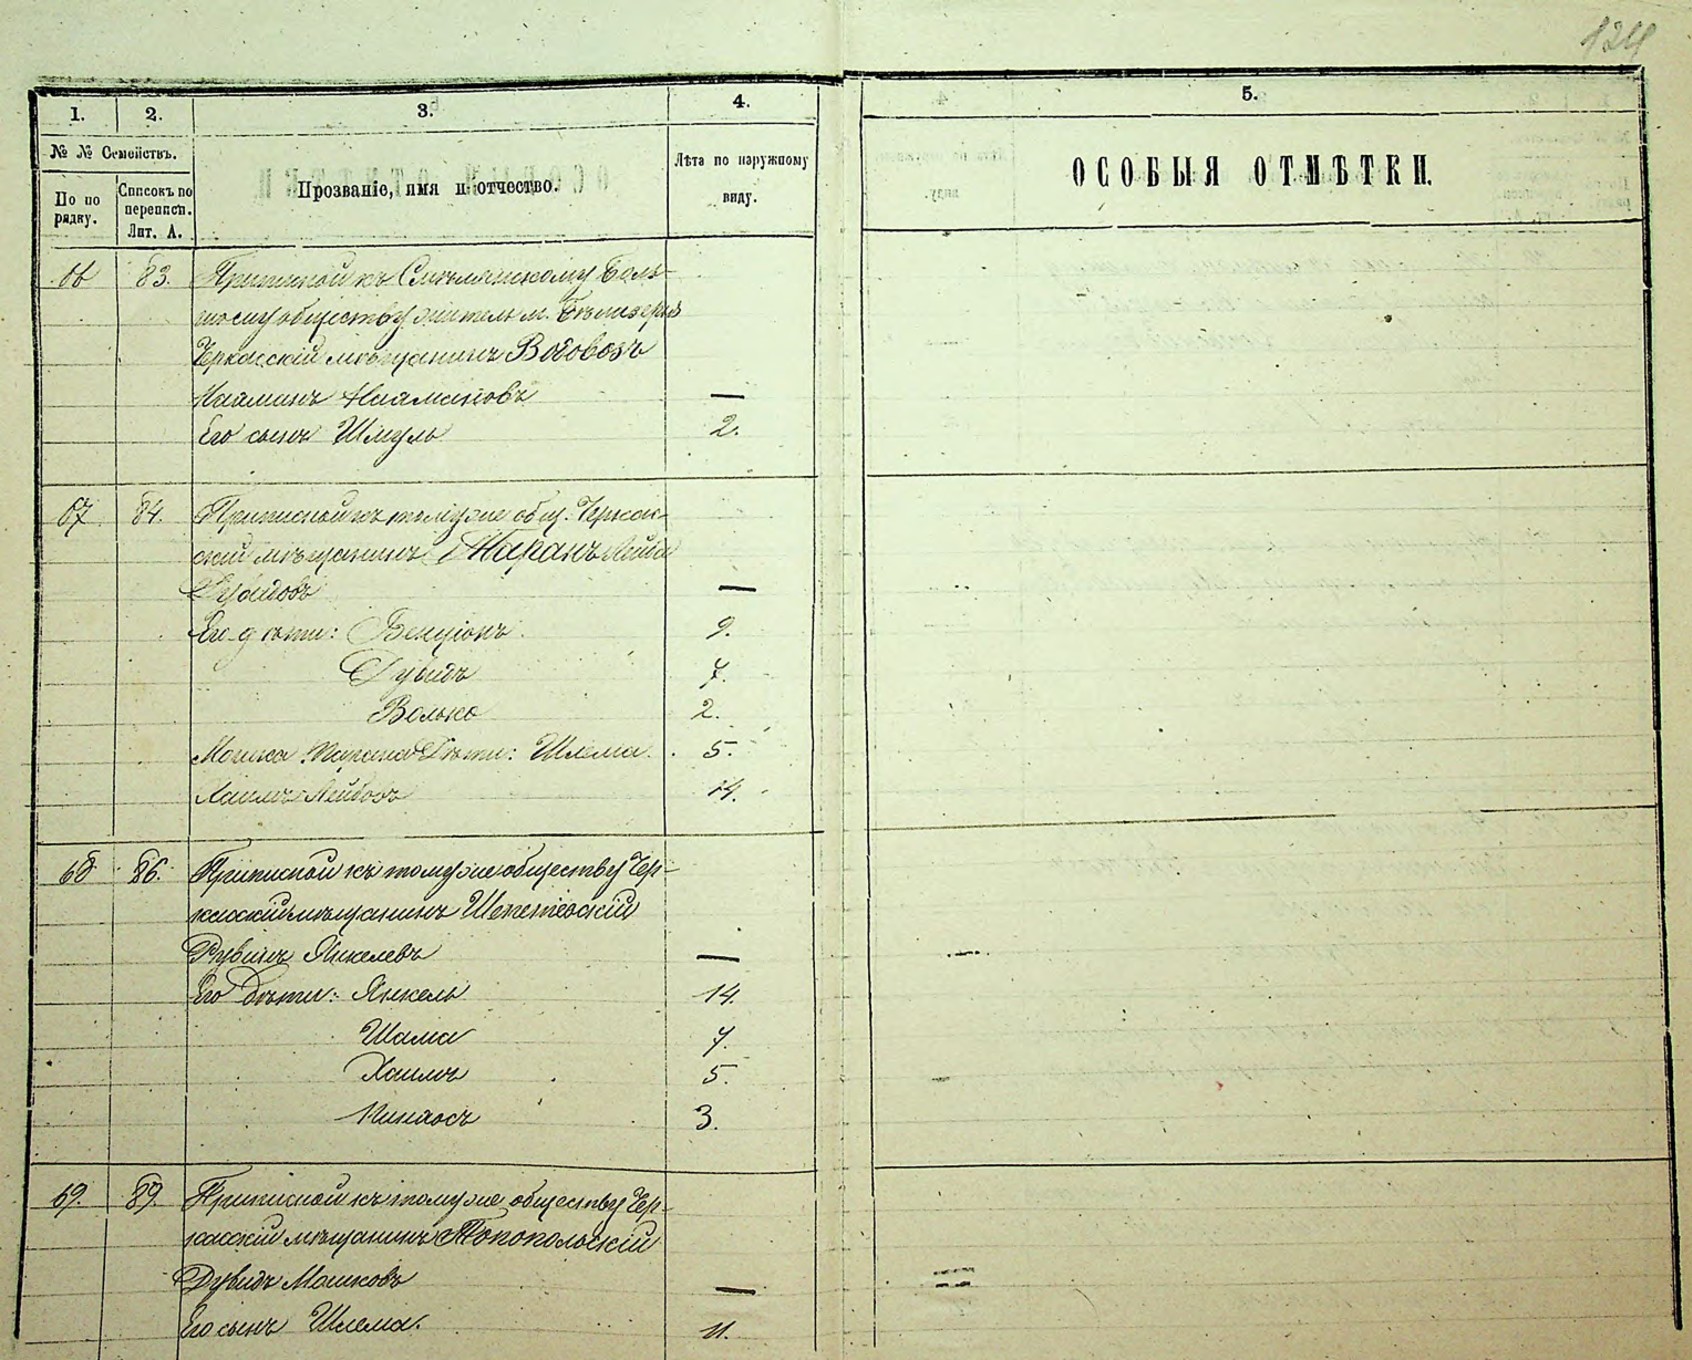 124
1.
2.
3.
4.
5.
№ № Семействъ.
По по
рядку.
Списокъ по
переписи.
Лит. А.
Прозваніе, имя и отчество.
Лѣта по наружному
виду.
ОСОБЫЯ ОТМѢТКИ.
66 83. Приписной къ Смѣлянскому Боль-
шому обществу житель м. Бѣлозерья
Черкасскій мѣщанинъ Водовозъ
Нааманъ Наамановъ —
Его сынъ Шмуль 2.
67 84. Приписной къ тому же общ. Черкас-
скій мѣщанинъ Таранъ Лейба
Дувидовъ —
Его дѣти: Бенціонъ 9.
Дувидъ 7.
Волько 2.
Мошка Тарана дѣти: Шлема. 5.
Хаимъ Лейбовъ 14.
68 86. Приписной къ тому же обществу Чер-
касскій мѣщанинъ Шепетевскій
Рувинъ Янкелевъ —
Его дѣти: Янкель 14.
Шама 7.
Хаимъ 5.
Пинхосъ 3.
69. 89. Приписной къ тому же обществу Чер-
касскій мѣщанинъ Топопольскій
Дувидъ Мошковъ —
Его сынъ Шлема. 11.